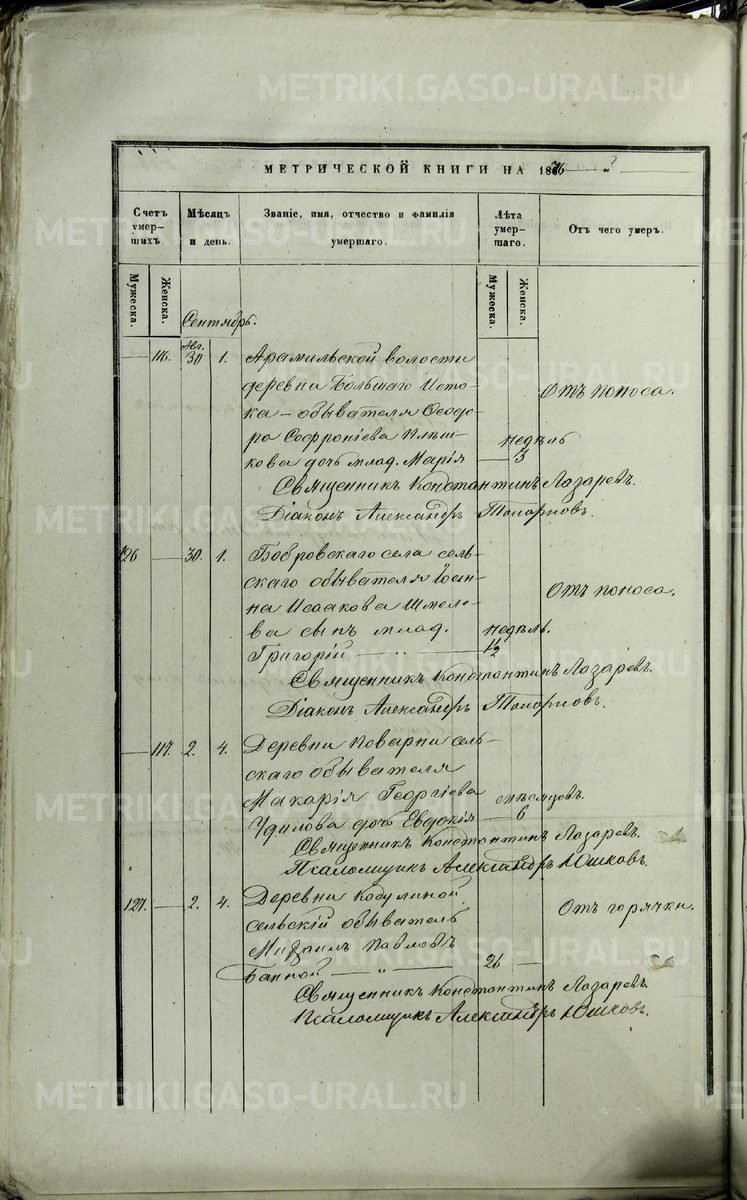 METRIKI.GASO-URAL.RU
МЕТРИЧЕСКОЙ КНИГИ НА 1876
Счетъ умер-шихъ.
Мѣсяцъ и день.
Званіе, имя, отчество и фамилія умершаго.
Лѣта умер-шаго.
Отъ чего умеръ.
Мужеска.
Женска.
Мужеска.
Женска.
Сентябрь.
Авг.
116. 30 1. Арамильской волости
деревни Большаго Исто-
ка – обывателя Ѳеодо-
ра Софроніева Плѣш-
кова дочь млад. Марія
недѣль
3
Отъ поноса.
Священникъ Константинъ Лазаревъ.
Діаконъ Александръ Топорковъ.
126 30. 1. Бобровскаго села сель-
скаго обывателя Іоан-
на Исаакова Шмеле-
ва сынъ млад.
Григорій
недѣль.
1½
Отъ поноса.
Священникъ Константинъ Лазаревъ.
Діаконъ Александръ Топорковъ.
117. 2. 4. Деревни Поварни сель-
скаго обывателя
Макарія Георгіева
Удилова дочь Евдокія
мѣсяцовъ.
6
Священникъ Константинъ Лазаревъ.
Псаломщикъ Александръ Юшковъ.
127. 2. 4. Деревни Кодулиной
сельскій обыватель
Михаилъ Павловъ
Банной
26
Отъ горячки.
Священникъ Константинъ Лазаревъ.
Псаломщикъ Александръ Юшковъ.